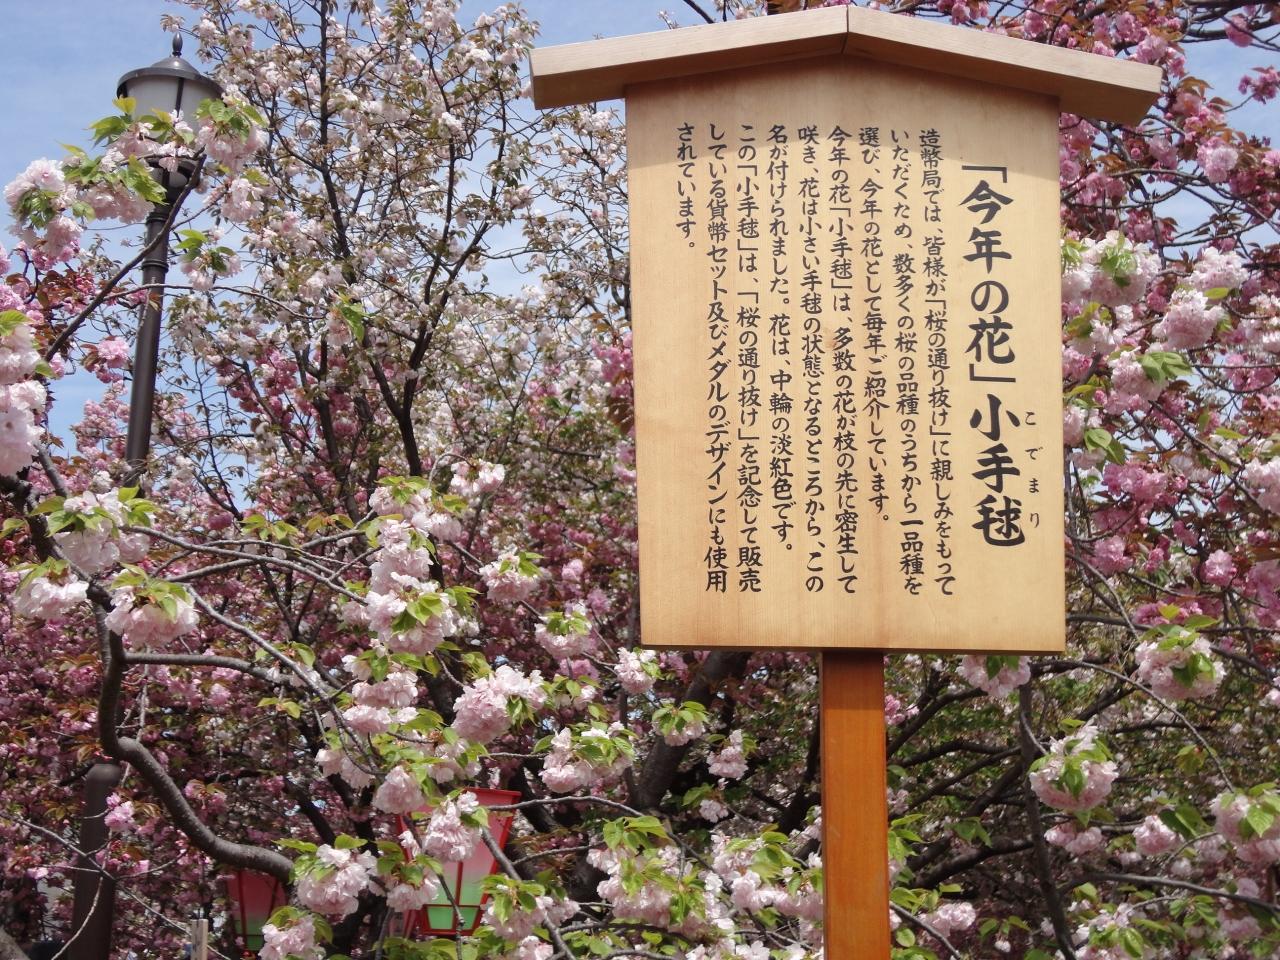 「今年の花」小手毬
こでまり
造幣局では、皆様が「桜の通り抜け」に親しみをもって
いただくため、数多くの桜の品種のうちから一品種を
選び、今年の花として毎年ご紹介しています。
今年の花「小手毬」は、多数の花が枝の先に密生して
咲き、花は小さい手毬の状態となるところから、この
名が付けられました。花は、中輪の淡紅色です。
この「小手毬」は、「桜の通り抜け」を記念して販売
している貨幣セット及びメダルのデザインにも使用
されています。